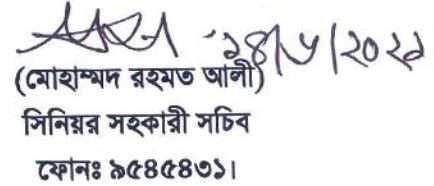 ২৪/৬/২০২১
(মোহাম্মদ রহমত আলী)
সিনিয়র সহকারী সচিব
ফোনঃ ৯৫৪৫৪৩১।